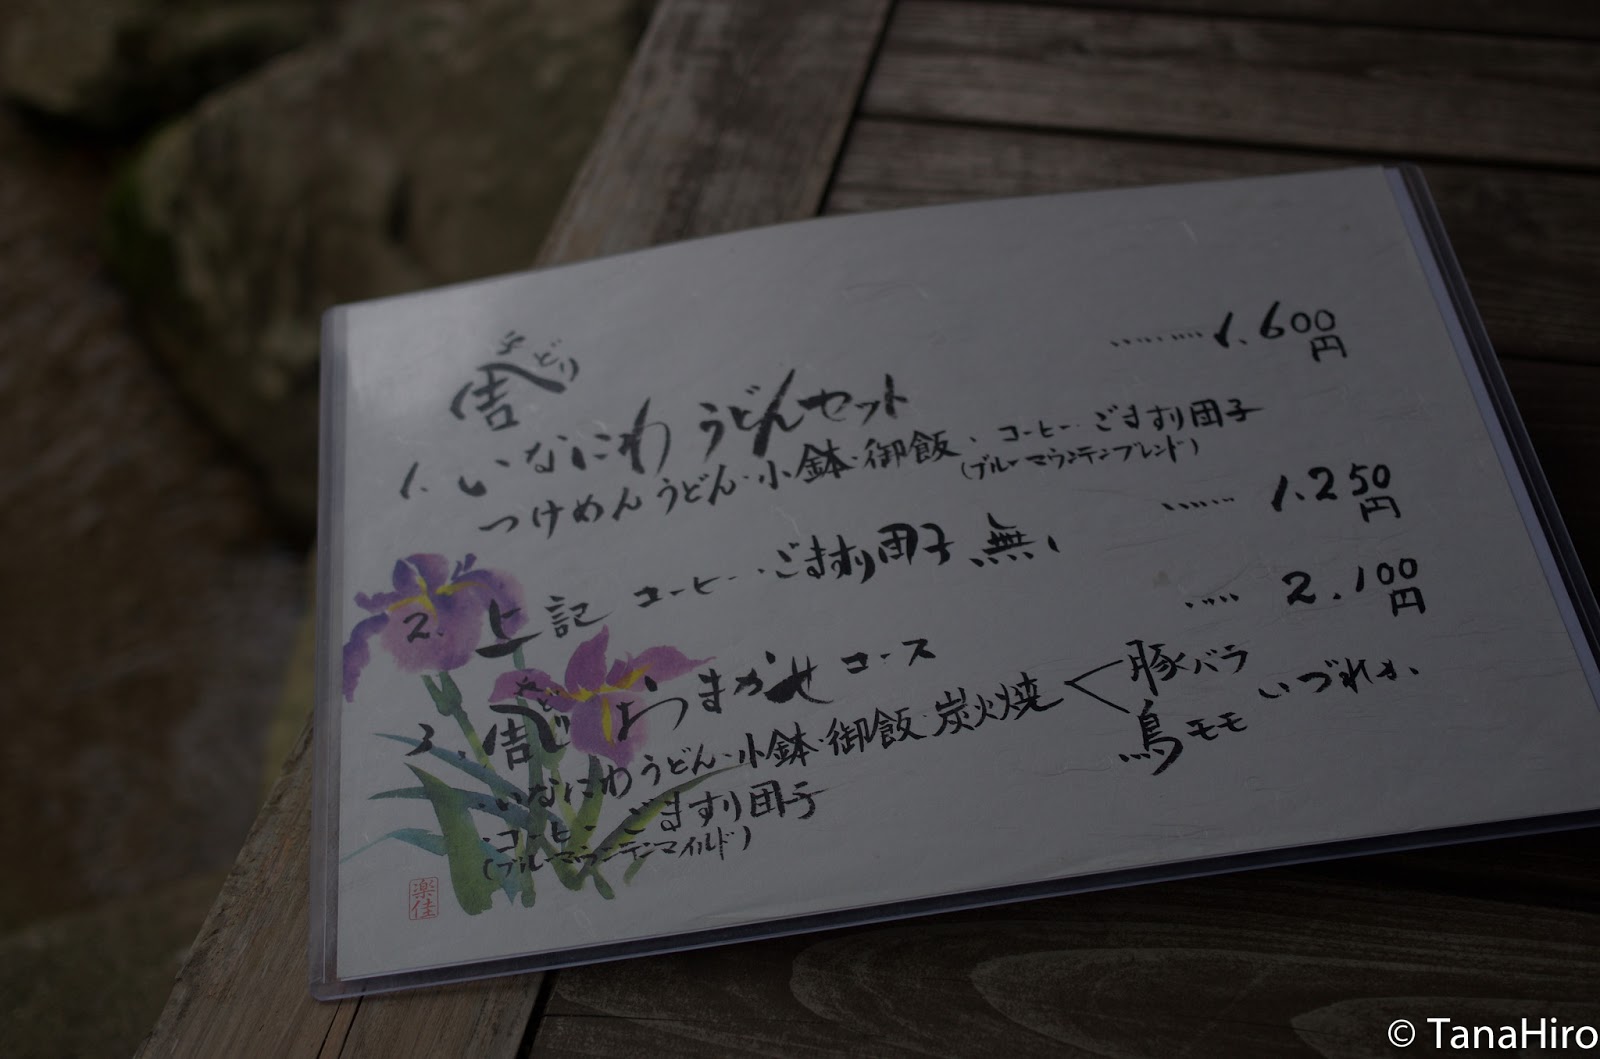 やどり
1. いなにわ うどんセット ………… 1.600円
つけめん うどん・小鉢・御飯・コーヒー・ごますり団子
(ブルーマウンテンブレンド)
2. 上記 コーヒー・ごますり団子、無し ……… 1.250円
3. おまかせ コース ……… 2.100円
・いなにわ うどん・小鉢・御飯・炭火焼 豚バラ
鳥モモ いづれか、
・コーヒー ごますり団子
(ブルーマウンテンマイルド)
楽佳
© TanaHiro